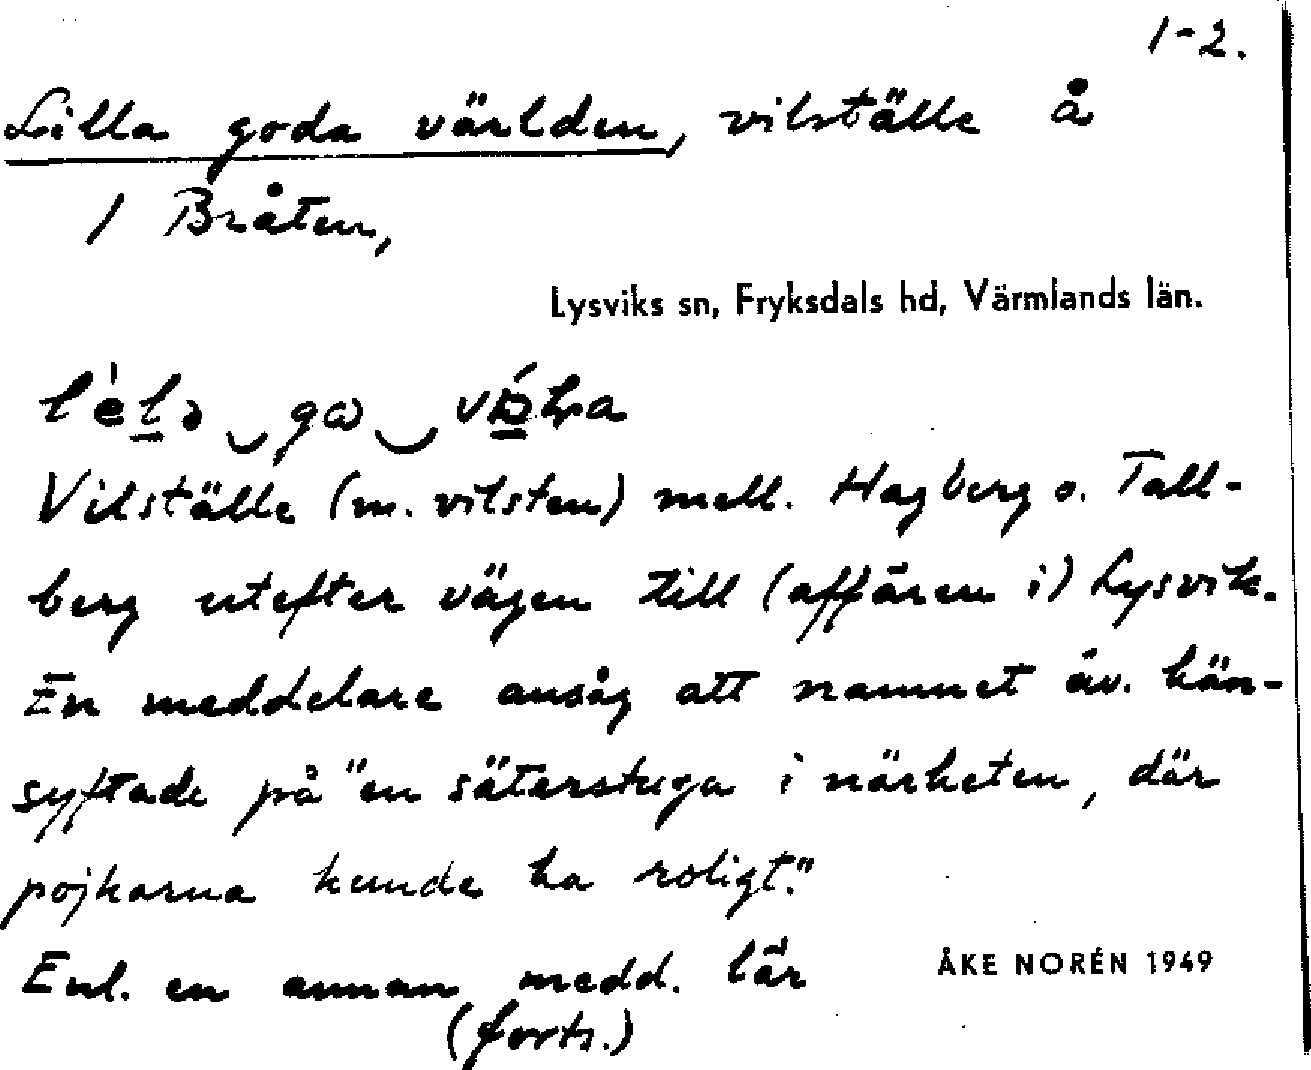 1-2.
Lilla goda världen, vilställe å
/ Bråten,
Lysviks sn, Fryksdals hd, Värmlands län.
Vilställe (m. vilsten) mell. Hagberg o. Tall-
berg utefter vägen till (affären i) Lysvik.
En meddelare ansåg att namnet äv. hän-
syftade på "en säterstuga i närheten, där
pojkarna kunde ha roligt."
Enl. en annan medd. lär
ÅKE NORÉN 1949
(forts.)